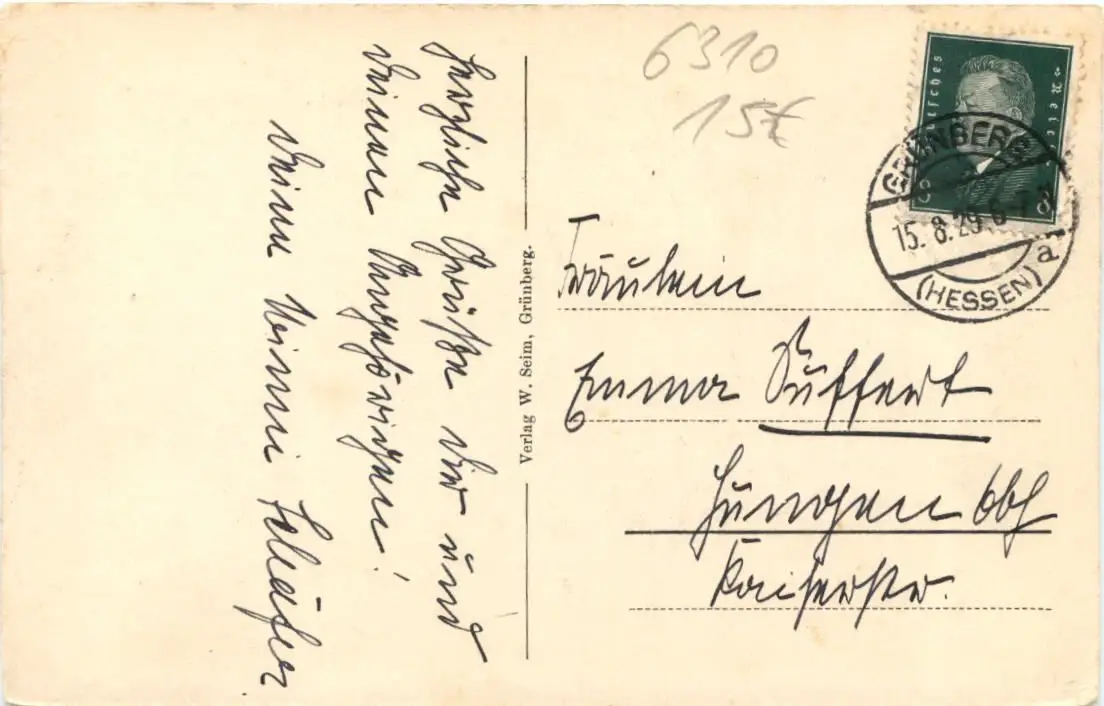 Herzliche Grüße dir und
deinen Angehörigen!
deine Minni Schäfer
Verlag W. Seim, Grünberg.
6310
15€
Deutsches Reich
8 8
GRÜNBERG
15. 8. 29. 6-7
a
(HESSEN)
Fräulein
Emma Suffert
Hungen Obh
Kaiserstr.